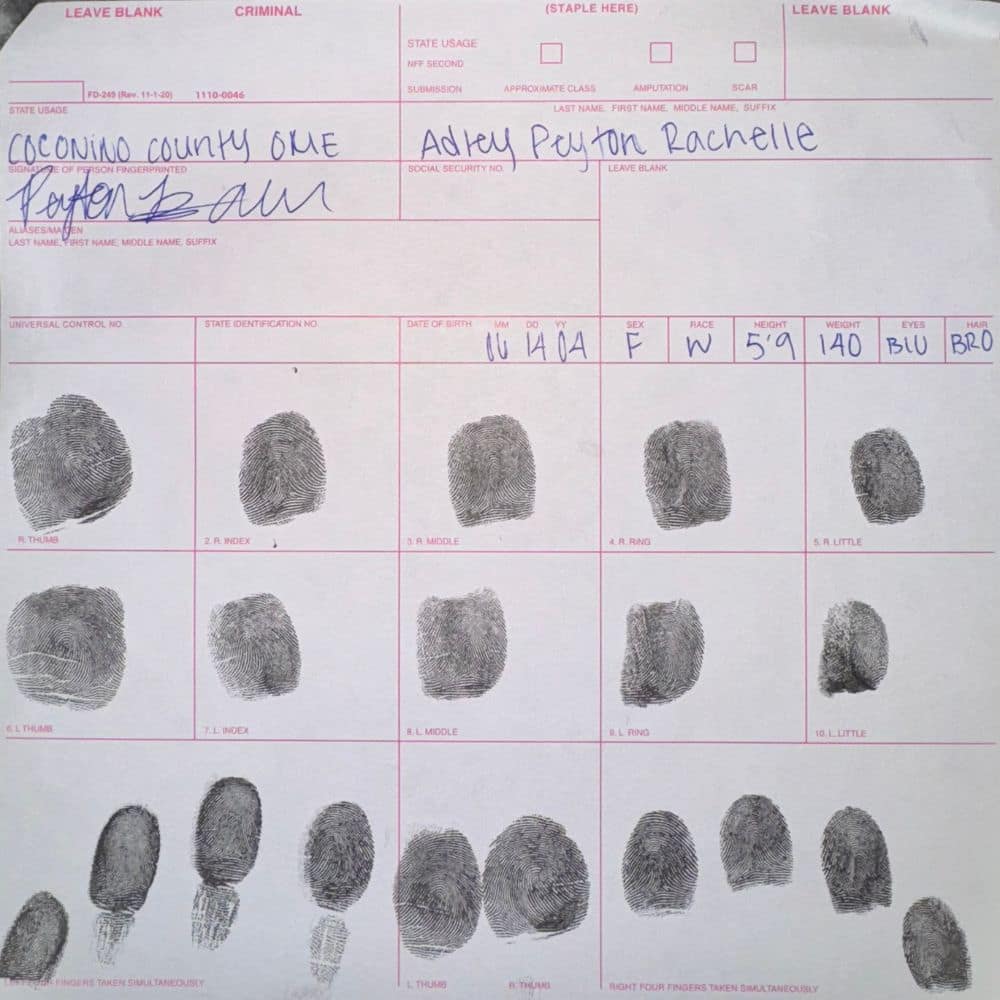 LEAVE BLANK CRIMINAL (STAPLE HERE) LEAVE BLANK
STATE USAGE
NFF SECOND
SUBMISSION APPROXIMATE CLASS AMPUTATION SCAR
FD-249 (Rev. 11-1-20) 1110-0046
STATE USAGE LAST NAME, FIRST NAME, MIDDLE NAME, SUFFIX
COCONINO COUNTY OME Adley Peyton Rachelle
SIGNATURE OF PERSON FINGERPRINTED SOCIAL SECURITY NO. LEAVE BLANK
Peyton
ALIASES/MAIDEN
LAST NAME, FIRST NAME, MIDDLE NAME, SUFFIX
UNIVERSAL CONTROL NO. STATE IDENTIFICATION NO. DATE OF BIRTH MM DD YY SEX RACE HEIGHT WEIGHT EYES HAIR
06 14 04 F W 5'9 140 BLU BRO
R. THUMB 2. R. INDEX 3. R. MIDDLE 4. R. RING 5. R. LITTLE
6. L. THUMB 7. L. INDEX 8. L. MIDDLE 9. L. RING 10. L. LITTLE
LEFT FOUR FINGERS TAKEN SIMULTANEOUSLY L. THUMB R. THUMB RIGHT FOUR FINGERS TAKEN SIMULTANEOUSLY